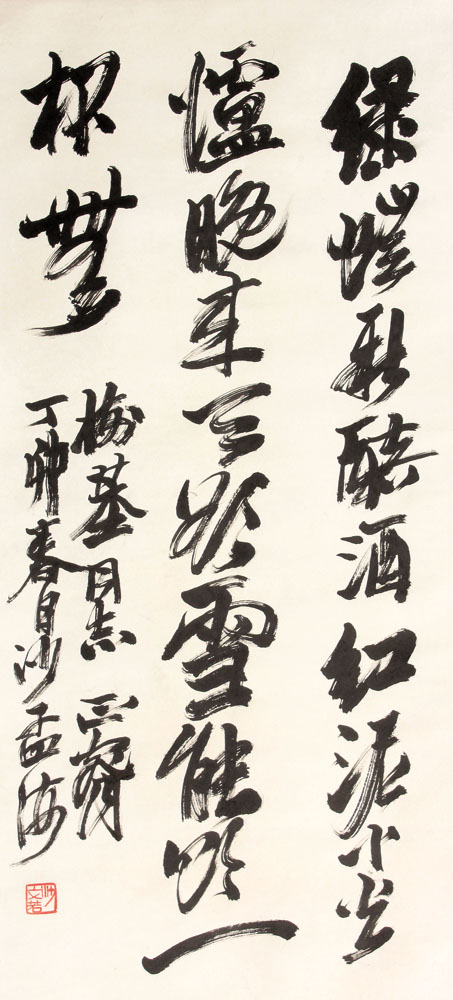 緑螘新醅酒紅泥小火
爐晚来天欲雪能飲一
杯無
梅基同志正
丁卯春日沙孟海
沙文若